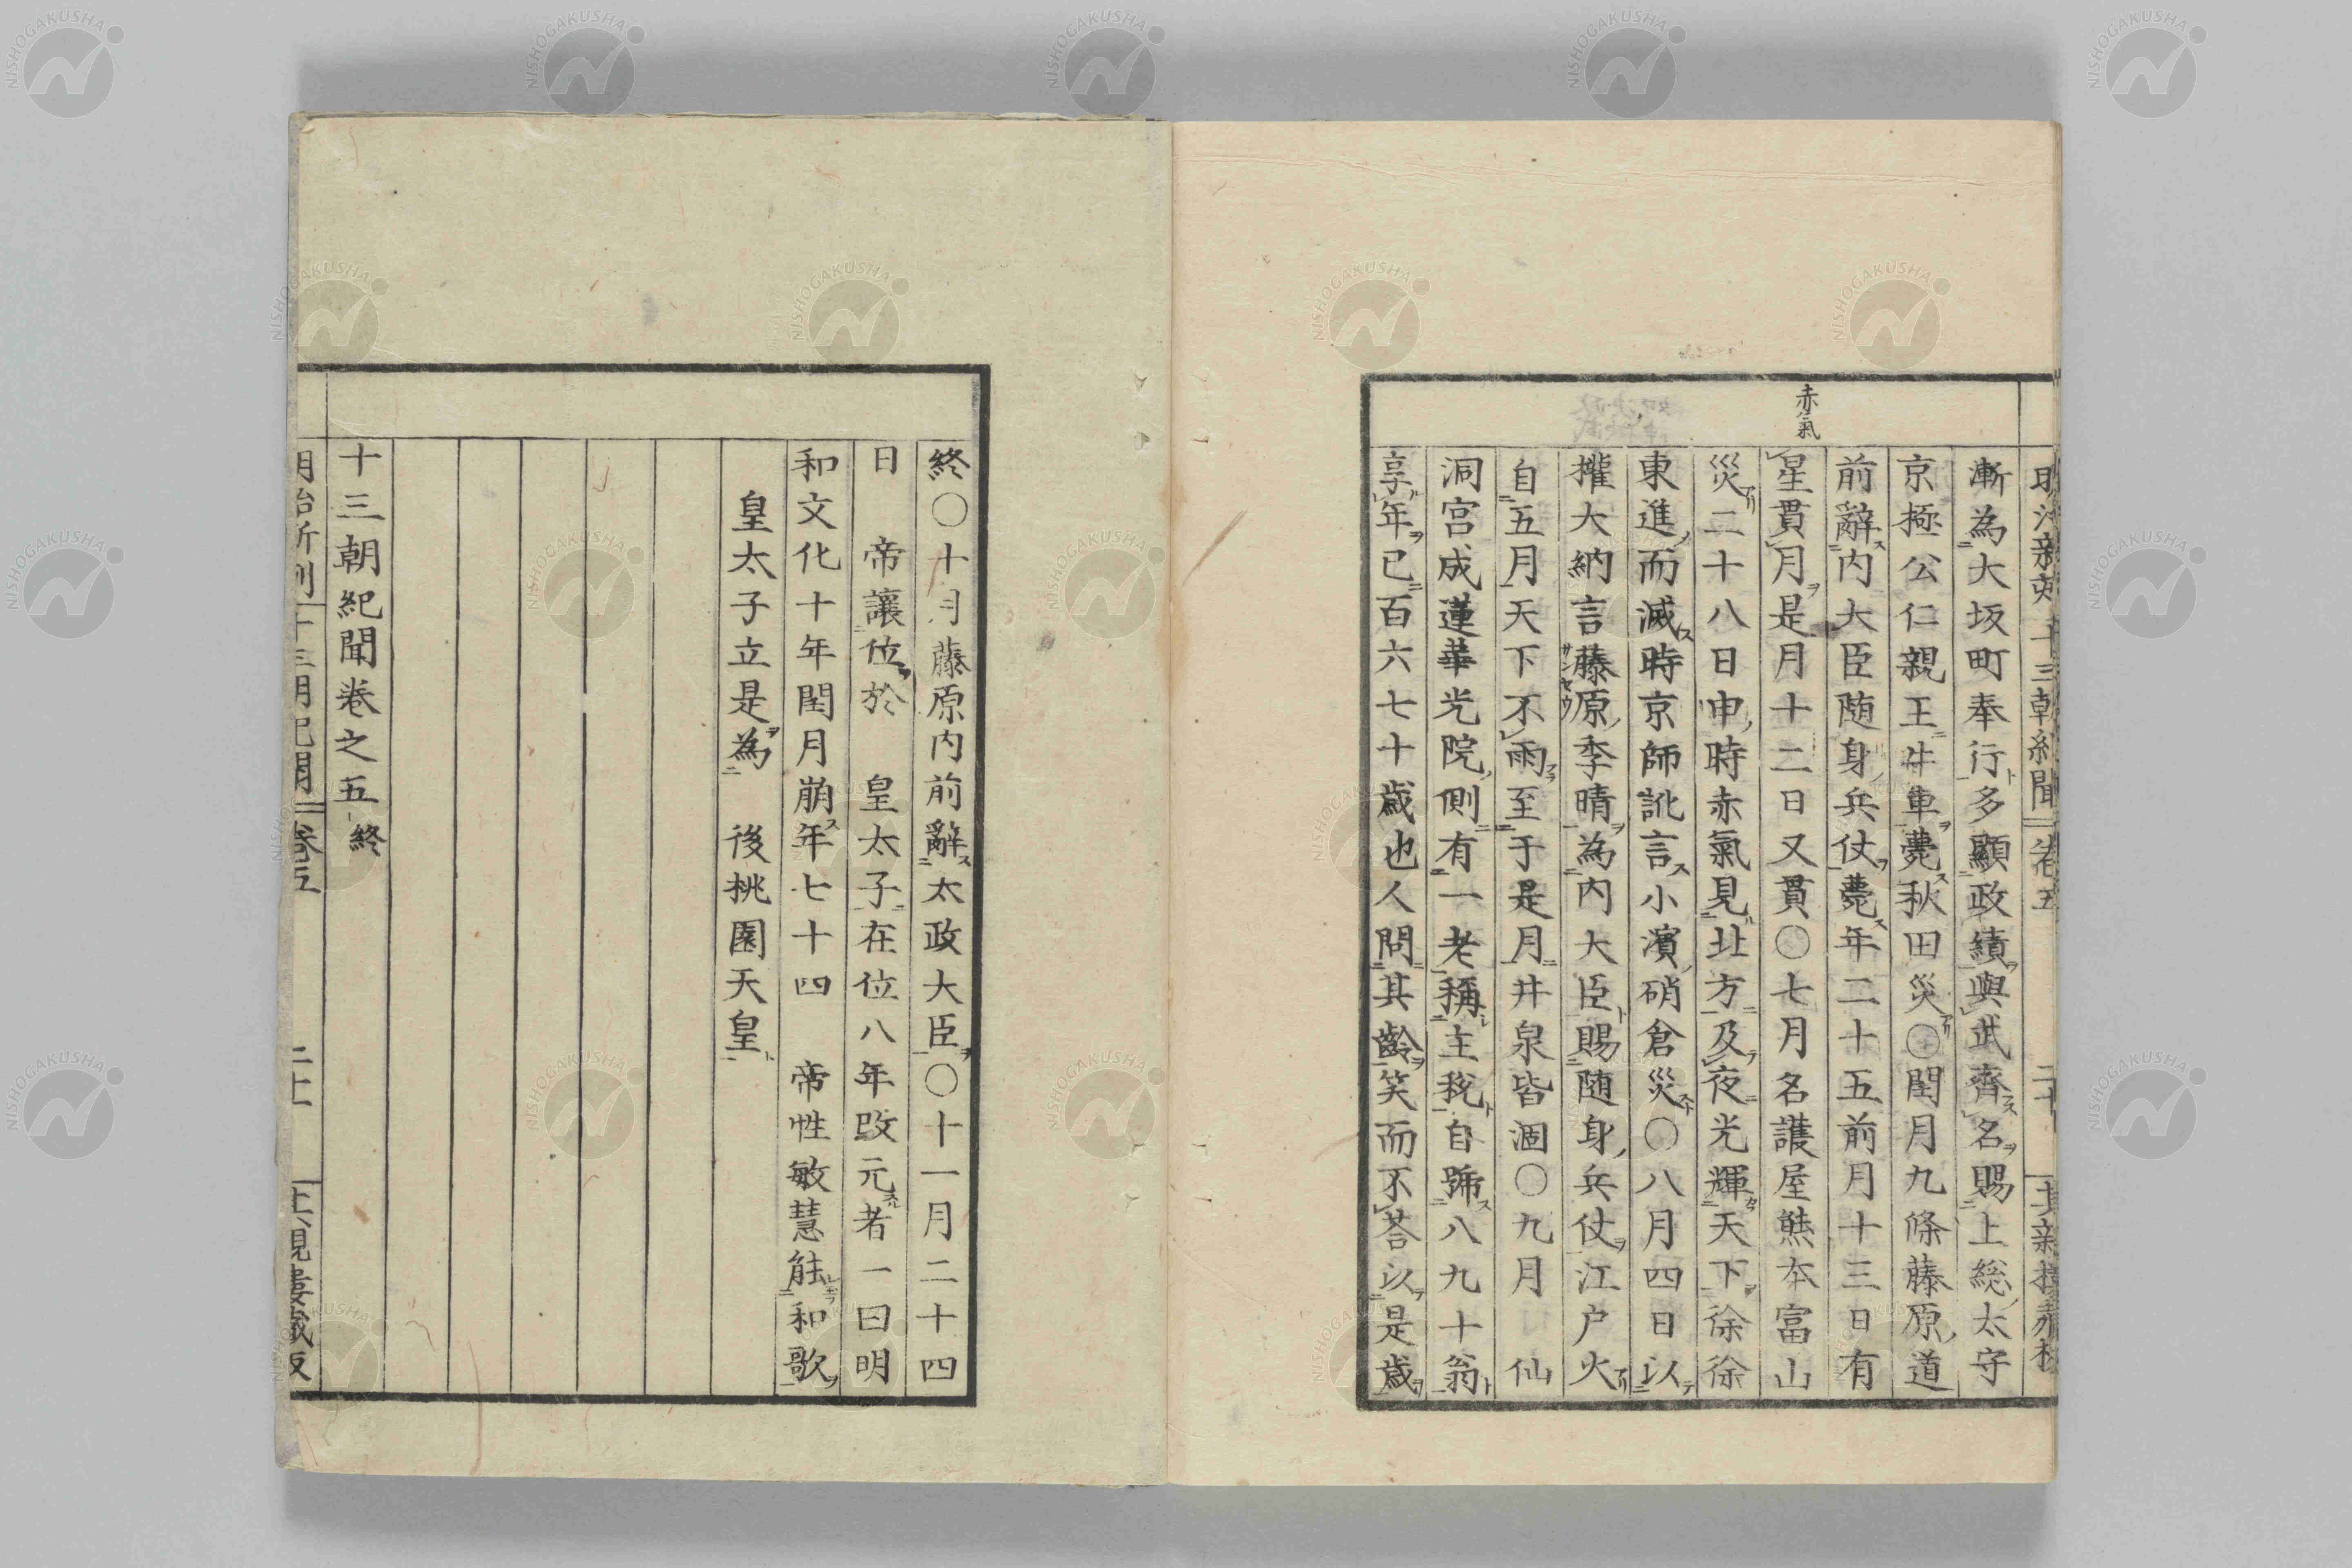 赤氣
漸為大坂町奉行多顯政績與武齊名賜上総太守
京極公仁親王牛車薨秋田災○閏月九條藤原道
前辭内大臣随身兵仗薨年二十五前月十三日有
星貫月是月十二日又貫○七月名護屋熊本富山
災二十八日申時赤氣見北方及夜光輝天下徐徐
東進而滅時京師訛言小濱硝倉災○八月四日以
權大納言藤原季晴為内大臣賜随身兵仗江户火
自五月天下不雨至于是月井泉皆涸○九月 仙
洞宮成蓮華光院側有一老稱主税自號八九十翁
享年已百六七十歳也人問其齡笑而不荅以是歳
終○十月藤原内前辭太政大臣○十一月二十四
日 帝讓位於 皇太子在位八年改元者一曰明
和文化十年閏月崩年七十四 帝性敏慧能和歌
皇太子立是為 後桃園天皇
十三朝紀聞巻之五終
明治新刻 十三朝紀聞 巻五